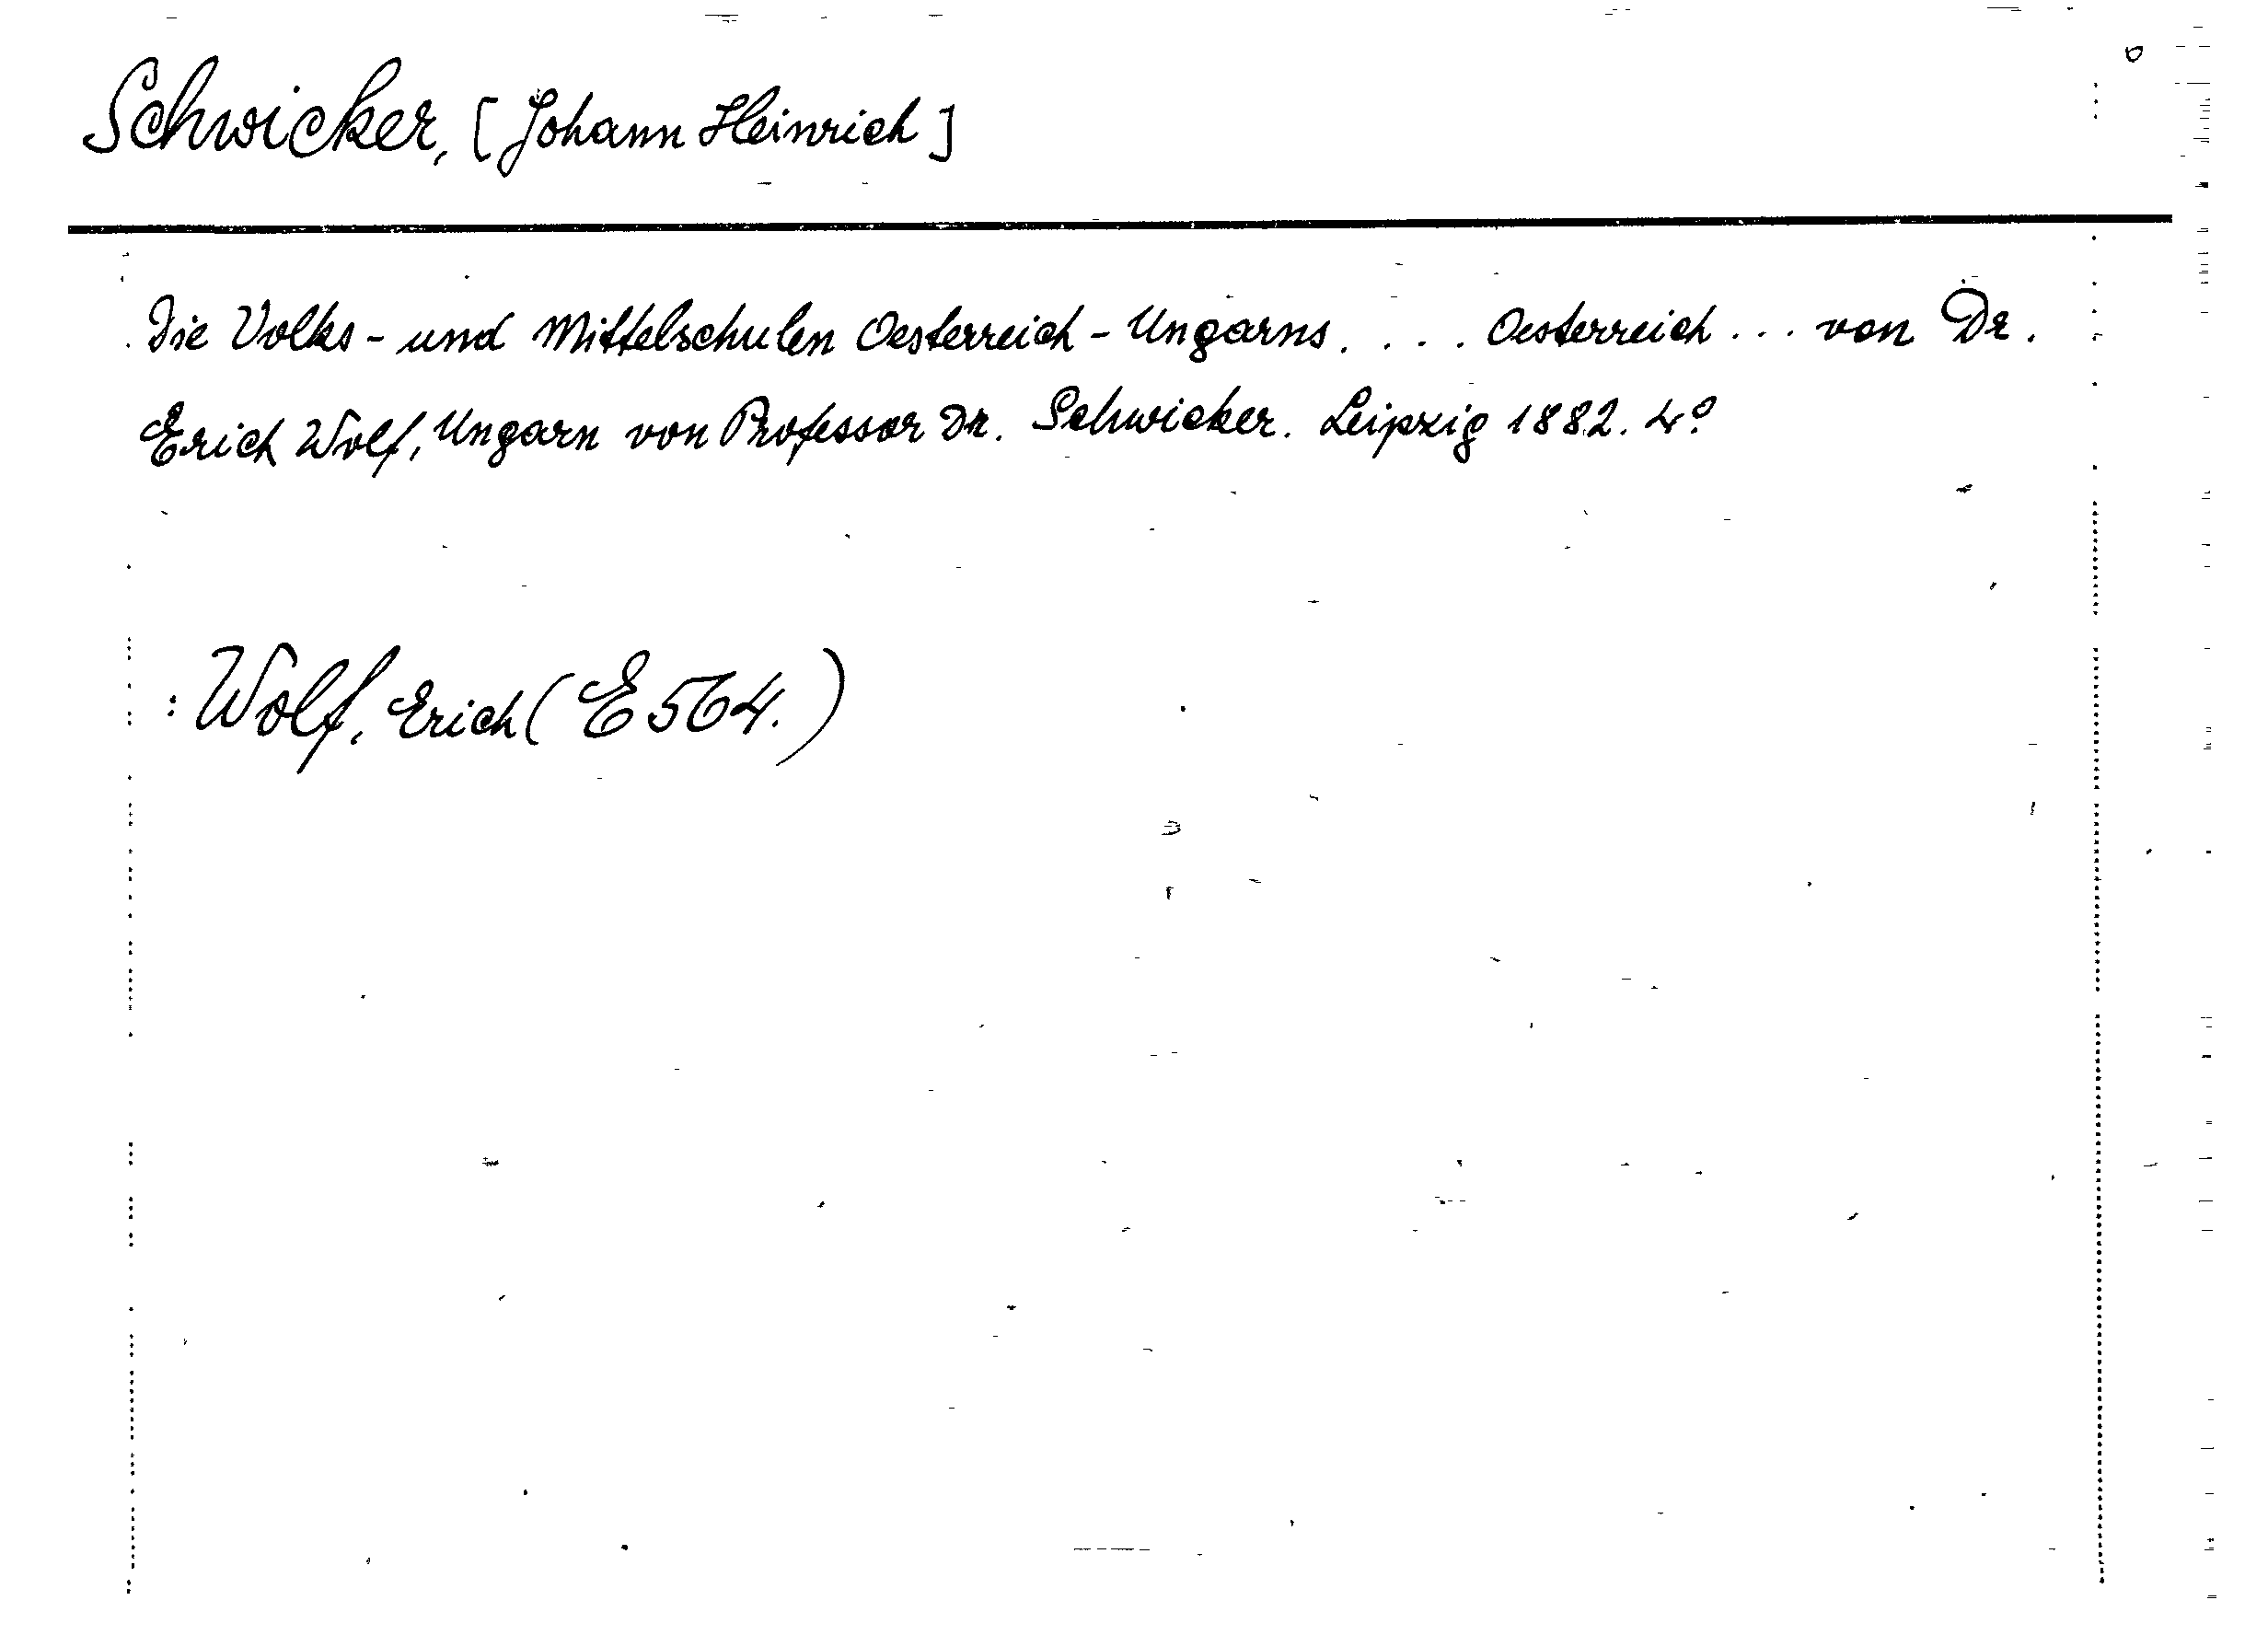 Schwicker, [Johann Heinrich]
Die Volks- und Mittelschulen Oesterreich-Ungarns. . . . Oesterreich . . . von Dr.
Erich Wolf, Ungarn von Professor Dr. Schwicker. Leipzig 1882. 4°
: Wolf, Erich (E 564.)